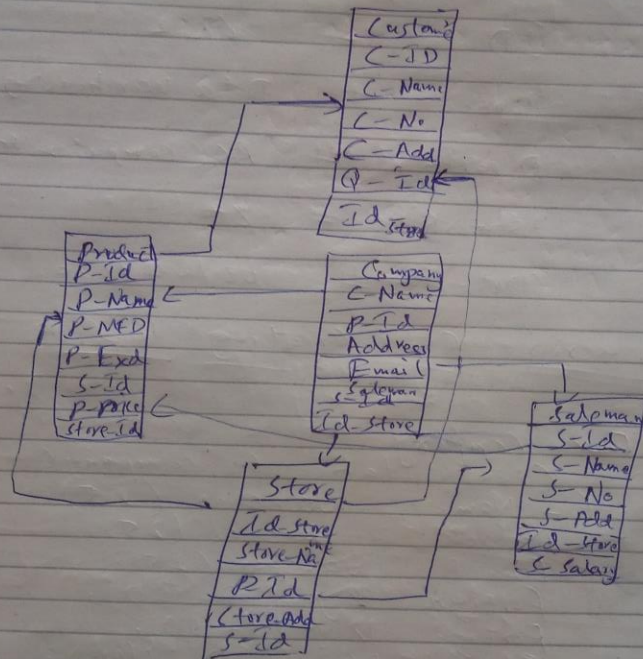 Custome
C-ID
C-Name
C-No
C-Add
Q-Id
Id Store
Product
P-Id
P-Name
P-MFD
P-Exd
S-Id
P-Price
Store-Id
Company
C-Name
P-Id
Address
Email
Saleman
S-Id
Id-Store
Saleman
S-Id
S-Name
S-No
S-Add
Id-Store
S-Salary
Store
Id store
Store-Name
P-Id
Store-Add
S-Id